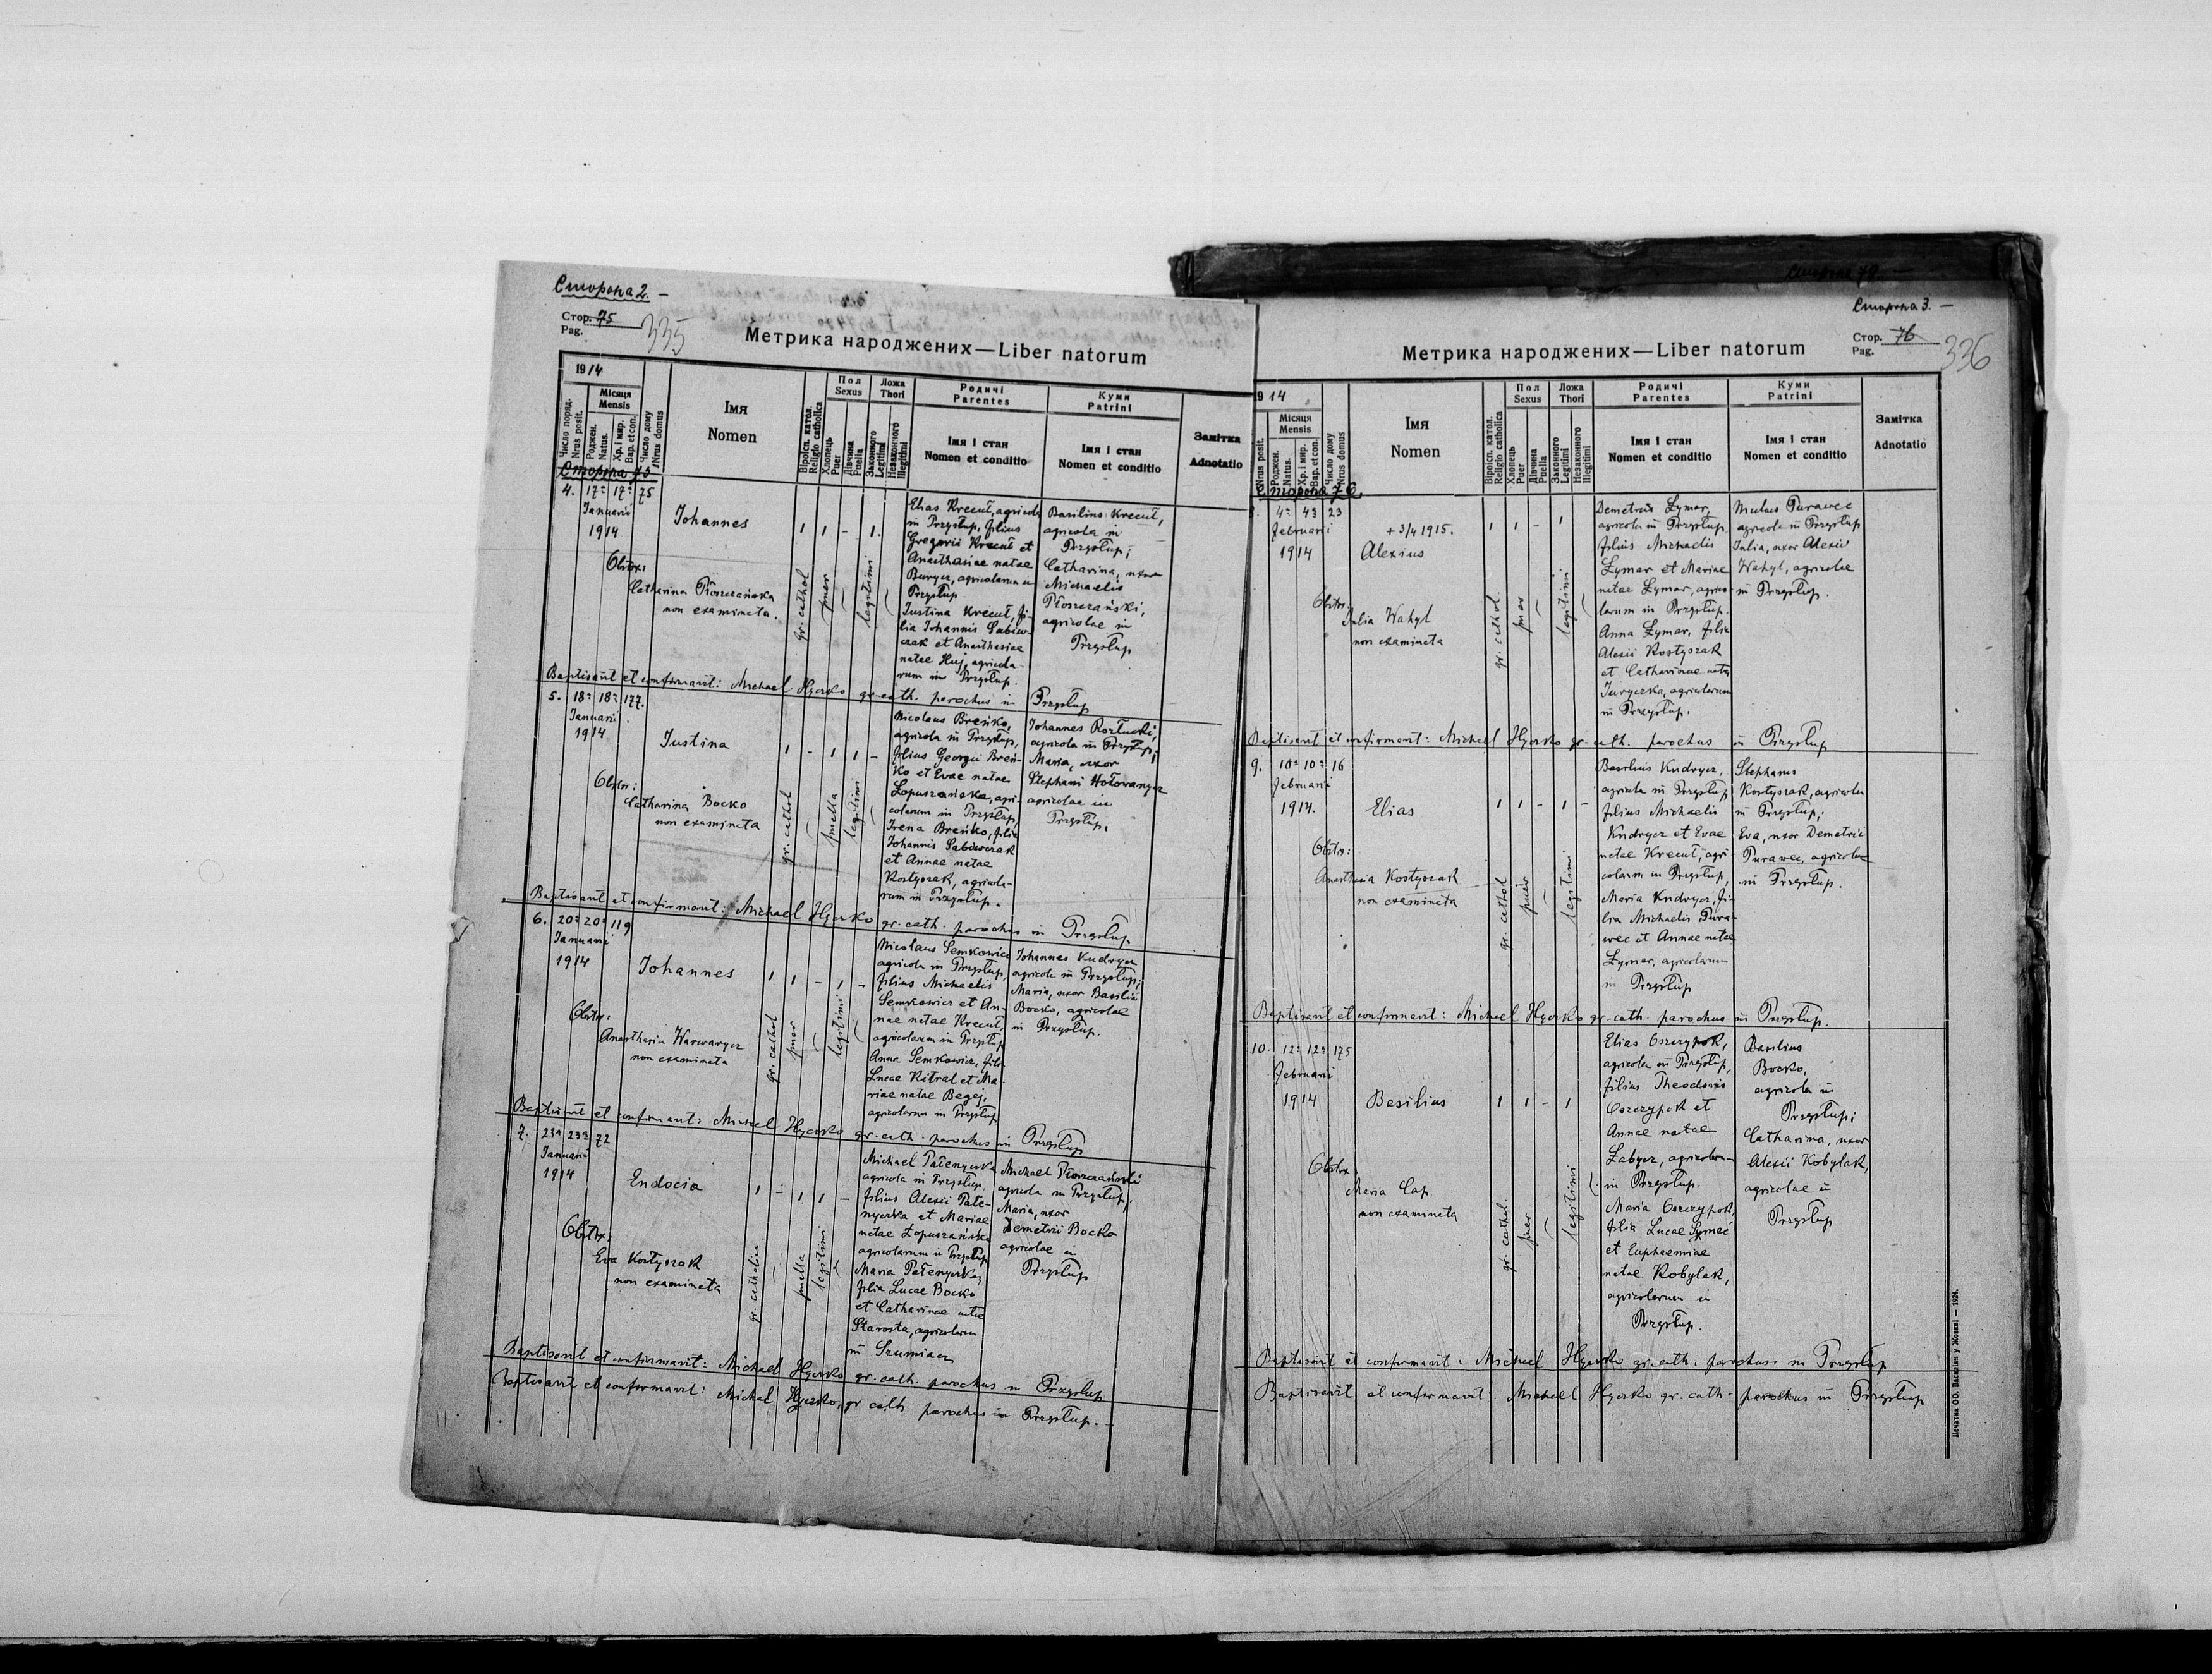 Сторона 2. –
Стор. 75
Pag.
335
Метрика народжених—Liber natorum
1914
Число поряд.
Nrus posit.
Місяця
Mensis
Роджен.
Natus.
Хр. і мир.
Bap. et con.
Число дому
Nrus domus
Імя
Nomen
Віроісп. катол.
Religio catholica
Пол
Sexus
Хлопець
Puer
Дівчина
Puella
Ложа
Thori
Законного
Legitimi
Незаконного
Illegitimi
Родичі
Parentes
Імя і стан
Nomen et conditio
Куми
Patrini
Імя і стан
Nomen et conditio
Замітка
Adnotatio
Сторона 75
4. 17ª 17ª 75
Januarii
1914
Johannes
1 1 – 1.
Obstr:
Catharina Płoszczańska
non examinata.
gr. cathol
puer
legitimi
Elias Krecuł, agricola
in Przysłup, filius
Gregorii Krecuł et
Anasthasiae natae
Burycz, agricolarum in
Przysłup
Justina Krecuł, fi-
lia Johannis Sabiw-
czak et Anasthasiae
natae Huj, agricola-
rum in Przysłup.
Basilius Krecuł,
agricola in
Przysłup;
Catharina, uxor
Michaelis
Płoszczański,
agricolae in
Przysłup
Baptisavit et confirmavit: Michael Hyczko gr. cath. parochus in Przysłup
5. 18ª 18ª 177.
Januarii
1914
Justina
1 – 1 1 –
Obstr:
Catharina Bocko
non examinata
gr. cathol
puella
legitimi
Nicolaus Breńko,
agricola in Przysłup,
filius Georgii Breń-
ko et Evae natae
Łopuszańska, agri-
colarum in Przysłup,
Irena Breńko, filia
Johannis Sabiwczak
et Annae natae
Kostyszak, agricola-
rum in Przysłup.
Johannes Rozłucki,
agricola in Przysłup;
Maria, uxor
Stephani Hołowanycz
agricolae in
Przysłup.
Baptisavit et confirmavit: Michael Hyczko gr. cath. parochus in Przysłup
6. 20ª 20ª 119
Januarii
1914
Johannes
1 1 – 1 –
Obstr:
Anasthasia Warwarycz
non examinata
gr. cathol
puer
legitimi
Nicolaus Semkowicz
agricola in Przysłup,
filius Michaelis
Semkowicz et An-
nae natae Krecuł,
agricolarum in Przysłup
Anna Semkowicz, filia
Lucae Kitral et Ma-
riae natae Begej,
agricolarum in Przysłup
Johannes Kudrycz
agricola in Przysłup;
Maria, uxor Basilii
Bocko, agricolae
in Przysłup.
Baptisavit et confirmavit: Michael Hyczko gr. cath. parochus in Przysłup
7. 23ª 23ª 72
Januarii
1914
Eudocia
1 – 1 1 –
Obstr:
Eva Kostyszak
non examinata
gr. catholica
puella
legitimi
Michael Pałenyczka
agricola in Przysłup,
filius Alexii Pałe-
nyczka et Mariae
natae Łopuszańska
agricolarum in Przysłup
Maria Pałenyczka,
filia Lucae Bocko
et Catharinae natae
Starosta, agricolarum
in Szumiacz
Michael Płoszczański
agricola in Przysłup;
Maria, uxor
Demetrii Bocko
agricolae in
Przysłup
Baptisavit et confirmavit: Michael Hyczko gr. cath. parochus in Przysłup
Baptisavit et confirmavit: Michael Hyczko, gr. cath parochus in Przysłup.
Сторона 3. –
Стор. 76
Pag.
336
Метрика народжених—Liber natorum
914
Nrus posit.
Місяця
Mensis
Роджен.
Natus.
Хр. і мир.
Bap. et con.
Число дому
Nrus domus
Імя
Nomen
Віроісп. катол.
Religio catholica
Пол
Sexus
Хлопець
Puer
Дівчина
Puella
Ложа
Thori
Законного
Legitimi
Незаконного
Illegitimi
Родичі
Parentes
Імя і стан
Nomen et conditio
Куми
Patrini
Імя і стан
Nomen et conditio
Замітка
Adnotatio
Сторона 76.
4ª 4ª 23
Februarii
1914
+ 3/4 1915.
Alexius
1 1 – 1
Obstr.
Julia Wahyl
non examinata
gr. cathol.
puer
legitimi
Demetrius Łymar,
agricola in Przysłup,
filius Michaelis
Łymar et Mariae
natae Łymar, agrico-
larum in Przysłup.
Anna Łymar, filia
Alexii Kostyszak
et Catharinae natae
Juryczko, agricolarum
in Przysłup.
Nicolaus Purawec
agricola in Przysłup
Julia, uxor Alexii
Wahyl, agricolae
in Przysłup.
Baptisavit et confirmavit: Michael Hyczko gr. cath. parochus in Przysłup
9. 10ª 10ª 16
Februarii
1914.
Elias
1 1 – 1 –
Obstr:
Anasthasia Kostyszak
non examinata
gr. cathol
puer
legitimi
Basilius Kudrycz,
agricola in Przysłup
filius Michaelis
Kudrycz et Evae
natae Krecuł, agri-
colarum in Przysłup,
Maria Kudrycz, fi-
lia Michaelis Pura-
wec et Annae natae
Łymar, agricolarum
in Przysłup
Stephanus
Kostyszak, agricola
in Przysłup;
Eva, uxor Demetrii
Purawec, agricolae
in Przysłup.
Baptisavit et confirmavit: Michael Hyczko gr. cath. parochus in Przysłup.
10. 12ª 12ª 175
Februarii
1914
Basilius
1 1 – 1
Obstr.
Maria Cap
non examinata
gr. cathol.
puer
legitimi
Elias Oszczypok,
agricola in Przysłup,
filius Theodori
Oszczypok et
Annae natae
Łabycz, agricolarum
in Przysłup.
Maria Oszczypok,
filia Lucae Symeć
et Euphemiae
natae Kobylak,
agricolarum in
Przysłup.
Basilius
Bocko,
agricola in
Przysłup;
Catharina, uxor
Alexii Kobylak,
agricolae in
Przysłup
Baptisavit et confirmavit: Michael Hyczko gr. cath. parochus in Przysłup
Baptisavit et confirmavit: Michael Hyczko gr. cath. parochus in Przysłup
Печатня ОО. Василіян у Жовкві — 1924.